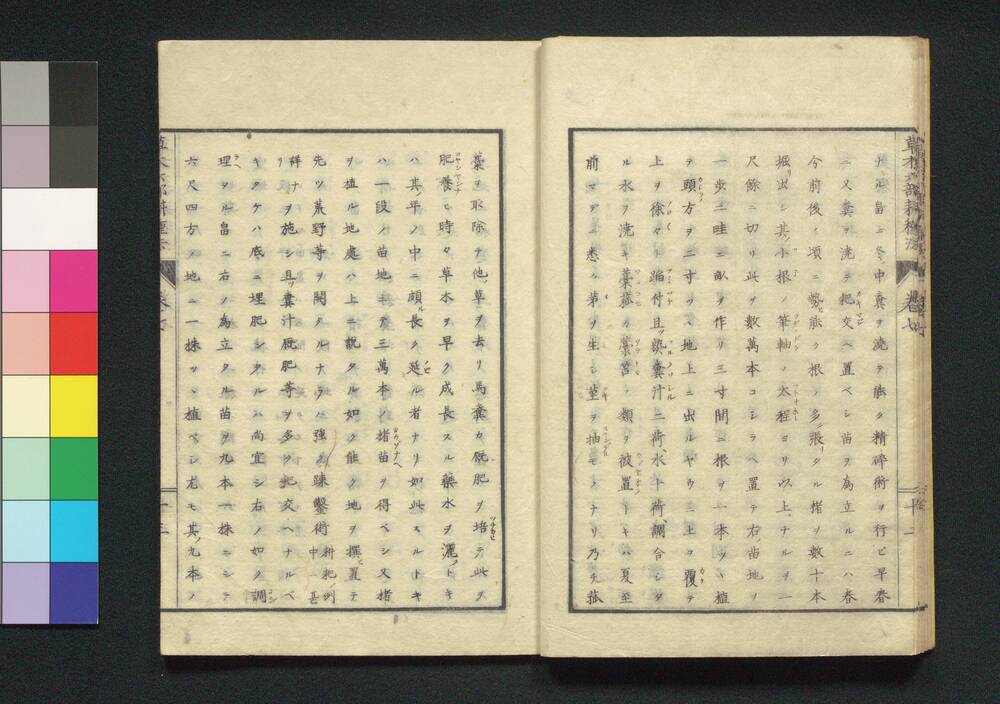 ナル畠ニ冬中糞ヲ澆テ能ク精碎術ヲ行ヒ早春
ニ又糞ヲ澆テ耙交ヘ置ベシ苗ヲ為立ルニハ春
今前後ノ頃ニ勢能ク根ノ多ク張リタル楮ヲ數十本
掘出シ其小根ノ筆軸ノ太程ヨリ以上ナルヲ一
尺餘ニ切リ此ヲ數萬本コシラヘ置テ右ノ苗地ノ
一歩ニ畦ニ畝ヲ作リ三寸間ニ根ヲ一本ツヽ植
テ頭方ヲ二寸ツヽ地上ニ出ルヤウニ土ヲ覆テ
上ヲ徐々踏付且ツ熟糞汁二荷水十荷調合シタ
ル水ヲ澆キ藁菰カ藁筥ノ類ヲ被置トキハ夏至
前マテニ悉ク芽ヲ生シ莖ヲ抽モノナリ乃チ菰
藁ヲ取除テ他草ヲ去リ馬糞カ厩肥ヲ培テ此ヲ
肥養ヒ時々草木ヲ早ク成長スル藥水ヲ灑トキ
ハ其年ノ中ニ頗ル長ク延ル者ナリ如此スルトキ
ハ一段ノ苗地ニテ三萬本ノ楮苗ヲ得ベシ又楮
ヲ植ル地處ハ上ニ説タル如ク能ク地ヲ撰ヒ置テ
先ツ荒野等ヲ開クルナラハ強ク疎鑿術中耕耙ノ一例甚
ナリヲ施シ且ツ糞汁厩肥等ヲ多ク耙交ヘナルベ
キタケハ底ニ埋肥シタルハ尚宜シ右ノ如ク調
理ヘヲル畠ニ右ノ為立タル苗ヲ九本一株ニシテ
六尺四方ノ地ニ一株ツヽ植ベシ尤モ其九本ノ
草木六部耕種法
卷廿
十二
十三